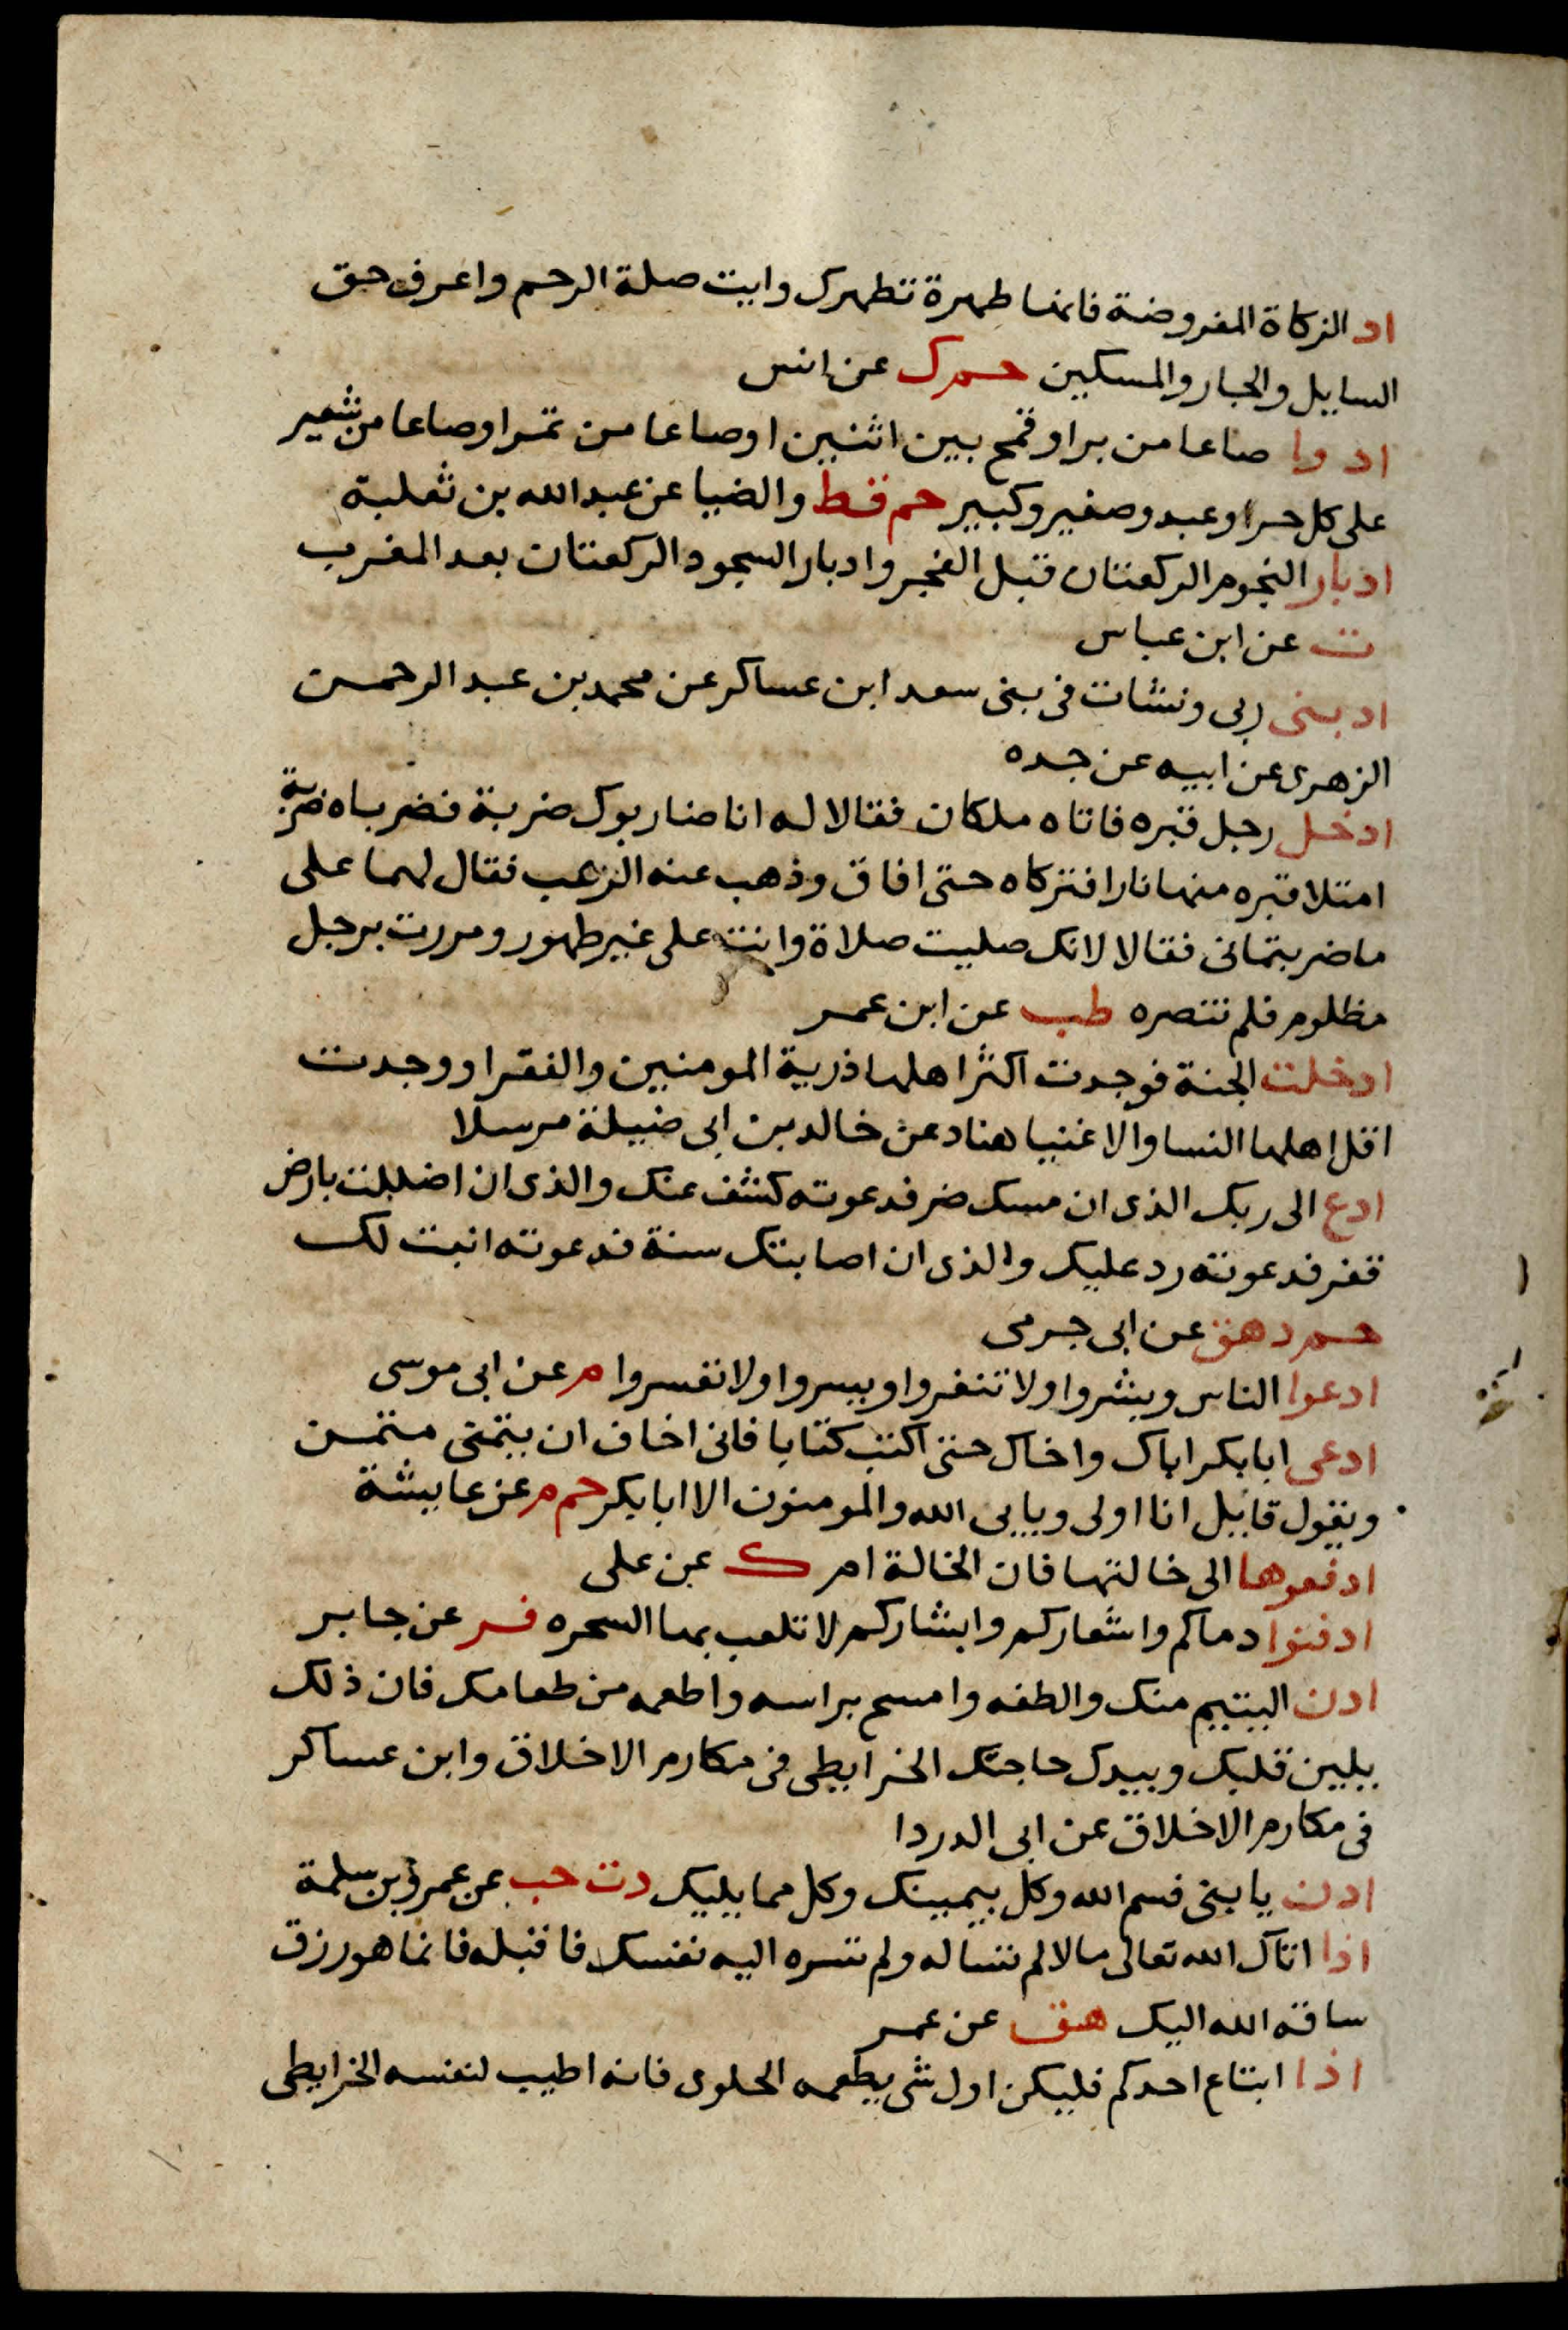 اد الزكاة المفروضة فانها طهرة تطهرك وايت صلة الرحم واعرف حق
السايل والجار والمسكين حم ك عن انس
ادوا صاعا من بر او قمح بين اثنين او صاعا من تمر او صاعا من شعير
على كل حر او عبد وصغير وكبير حم قط والضيا عن عبد الله بن ثعلبة
ادبار النجوم الركعتان قبل الفجر وادبار السجود الركعتان بعد المغرب
ت عن ابن عباس
ادبنى ربى ونشات فى بنى سعد ابن عساكر عن محمد بن عبد الرحمن
الزهرى عن ابيه عن جده
ادخل رجل قبره فاتاه ملكان فقالا له انا ضاربوك ضربة فضرباه ضربة
امتلا قبره منها نارا فتركاه حتى افاق وذهب عنه الرعب فقال لهما على
ما ضربتمانى فقالا لانك صليت صلاة وانت على غير طهور ومررت برجل
مظلوم فلم تنصره طب عن ابن عمر
ادخلت الجنة فوجدت اكثر اهلها ذرية المومنين والفقرا ووجدت
اقل اهلها النسا والاغنيا هناد عن خالد بن ابى ضبيلة مرسلا
ادع الى ربك الذى ان مسك ضر فدعوته كشف عنك والذى ان اضللت بارض
قفر فدعوته رد عليك والذى ان اصابتك سنة فدعوته انبت لك
حم د هق عن ابى جرمى
ادعوا الناس وبشروا ولا تنفروا ويسروا ولا تعسروا م عن ابى موسى
ادعى ابا بكر اباك واخاك حتى اكتب كتابا فانى اخاف ان يتمنى متمن
ويقول قايل انا اولى ويابى الله والمومنون الا ابا بكر حم م عن عايشة
ادفعوها الى خالتها فان الخالة ام ك عن على
ادفنوا دماكم واشعاركم وابشاركم لا تلعب بها السحره فر عن جابر
ادن اليتيم منك والطفه وامسح براسه واطعمه من طعامك فان ذلك
يلين قلبك ويدرك حاجتك الخرايطى فى مكارم الاخلاق وابن عساكر
فى مكارم الاخلاق عن ابى الدردا
ادن يا بنى فسم الله وكل بيمينك وكل مما يليك د ت حب عن عمرو بن سلمة
اذا اتاك الله تعالى مالا لم تساله ولم تسره اليه نفسك فاقبله فانما هو رزق
ساقه الله اليك هق عن عمر
اذا ابتاع احدكم فليكن اول شى يطعمه الحلوى فانه اطيب لنفسه الخرايطى